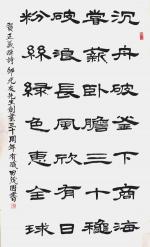 沉舟破釜下商海
嘗薪卧膽三十穐
破浪長風欣有日
粉絲綠色惠全球
先生創業三十周年有感